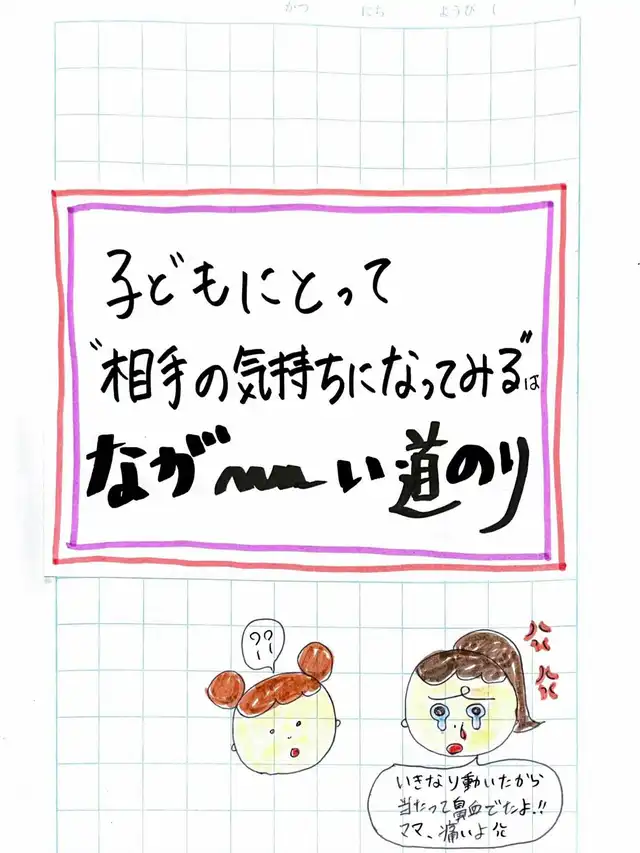 がつ にち ようび (
子どもにとって
"相手の気持ちになってみる"は
なが〰い道のり
??
いきなり動いたから
当たって鼻血でたよ!!
ママ、痛いよ